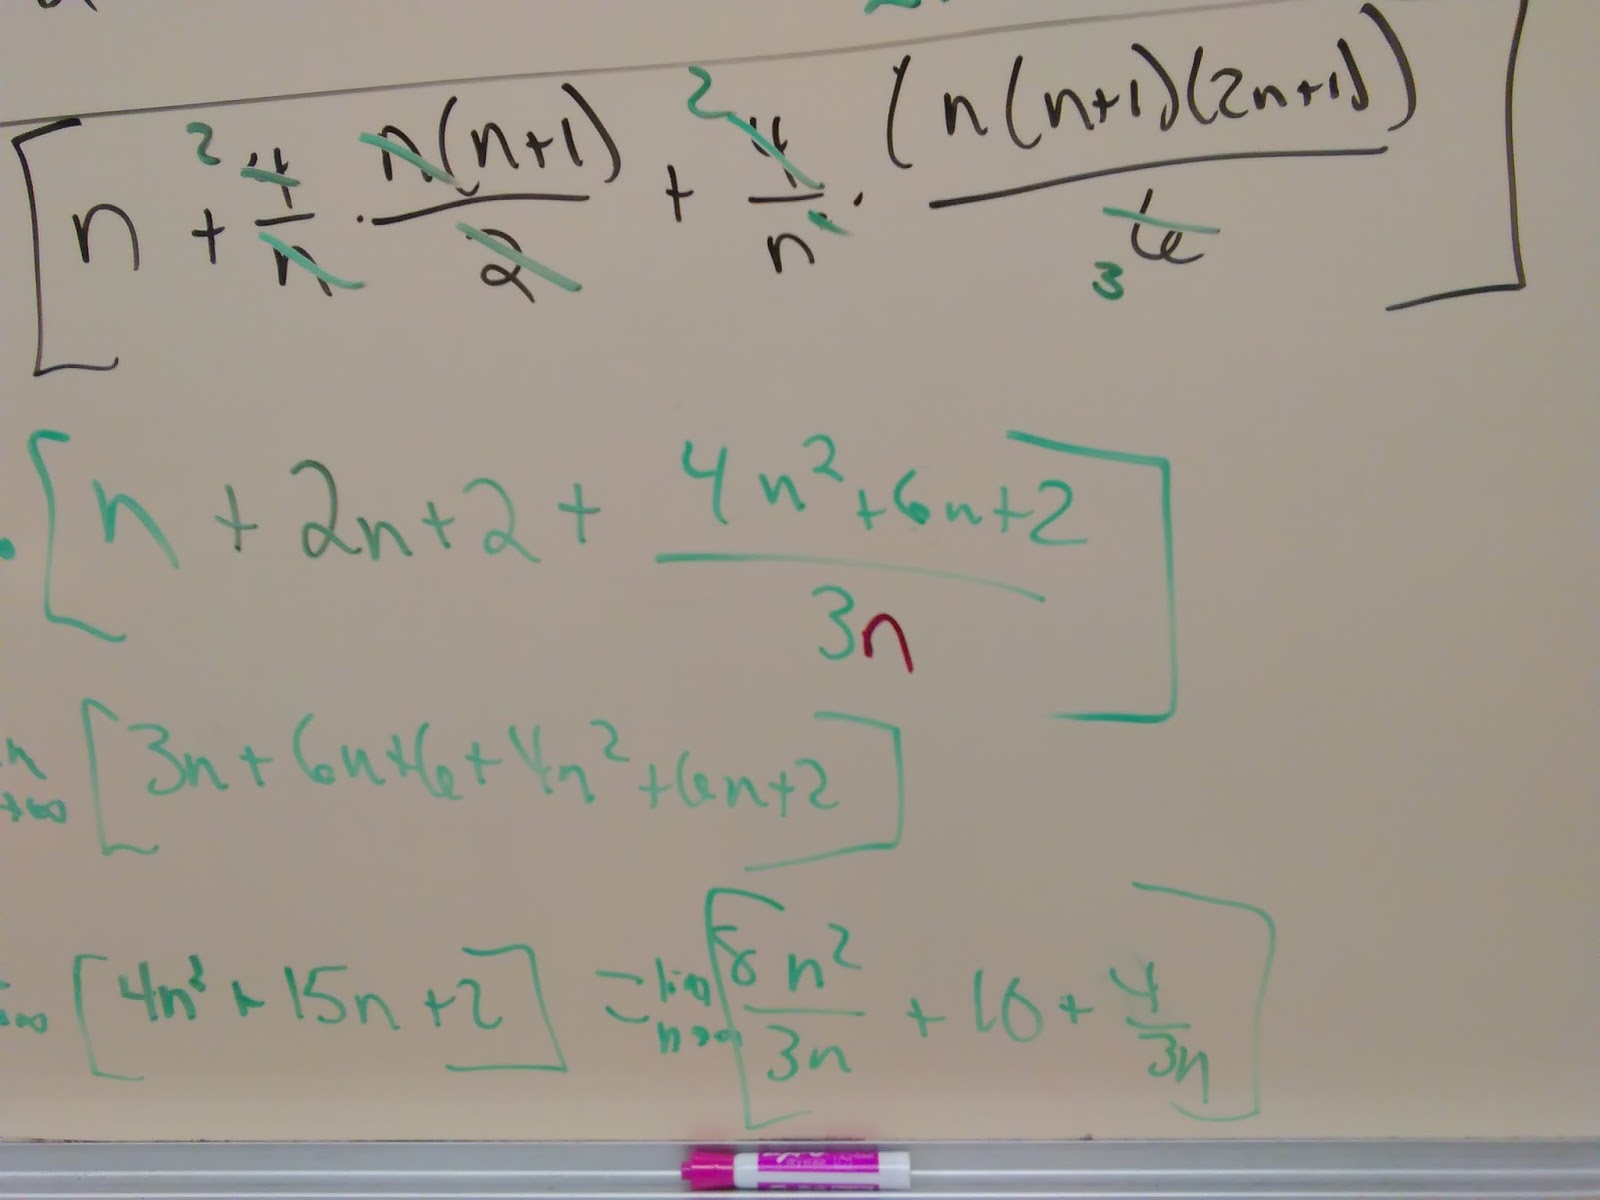 [n + 2 4/n · n(n+1)/2 + 2 4/n · (n(n+1)(2n+1))/6 3]
[n + 2n+2 + 4n²+6n+2/3n]
n→∞ [3n+6n+6+4n²+6n+2]
∞ [4n² + 15n+2] = lim n→∞ [8n²/3n + 10 + 4/3n]